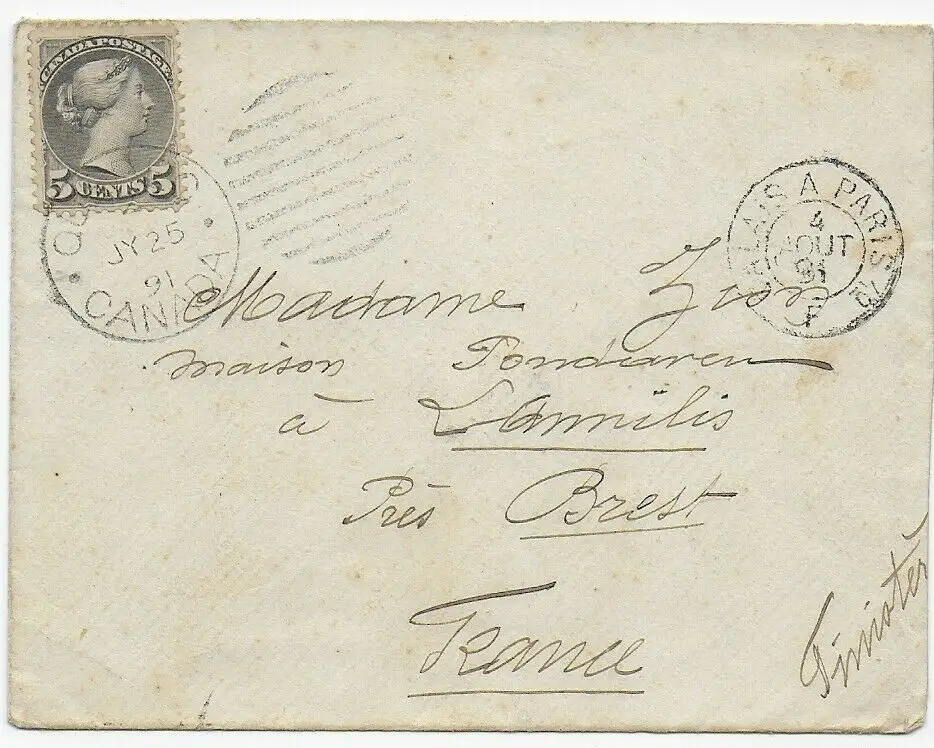 CANADA POSTAGE
5 CENTS 5
JY 25
91
CANADA
CALAIS A PARIS
4
AOUT
91
Madame
maison
à Lannilis
Près Brest
France
Finistère